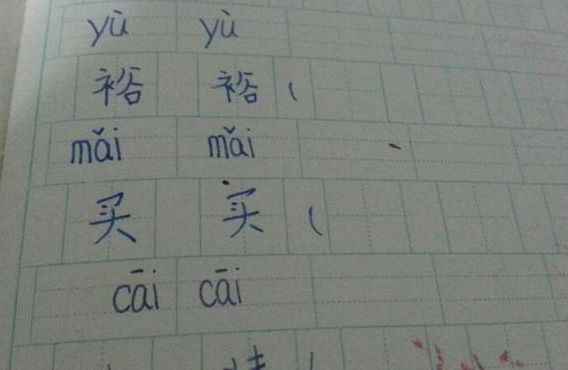 yù yù
裕 裕 (
mǎi mǎi
买 买 (
cāi cāi